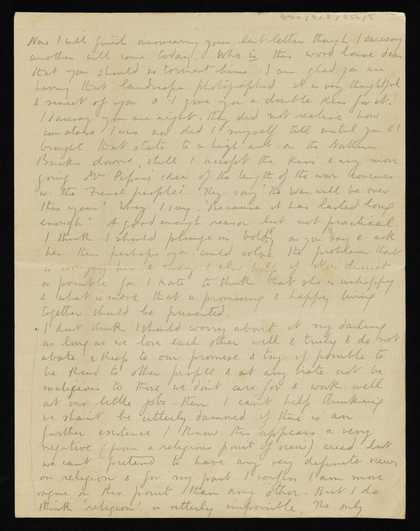 Now I will finish answering your last letter though I daresay
another will come today. Who is this wood louse dear
that you should so torment him. I am glad you are
having that landscape photographed it is very thoughtful
& sweet of you & I give you a double kiss for it.
I daresay you are right, they did not realise how
I was nor did I myself till
brought that state to a high on the Northern
I accept the &
going Mr idea of the length of the war
the French people. They say "the war will be over
this year." Why, I say. "Because it has lasted long
enough." A good enough reason but not practical.
I think I should plunge in boldly as you say & ask
her then perhaps you could solve the problem that
is worrying her &
as possible for I hate to think that she is unhappy
& what is more that a promising & happy living
together should be prevented.
I don't think I should worry about it my darling
as long as we love each other well & truly & do not
abate & keep to our promise & try if possible to
be kind to other people & at any rate not be
malicious to those we don't care for & work well
at our little jobs then I can't help thinking
we shan't be utterly damned if there is any
further existence. I know this appears a very
negative (from a religious point of view) creed but
we can't pretend to have any very definite views
on religion & for my part I confess I am more
vague on this point than any other. But I do
think 'religion' is utterly impossible. The only